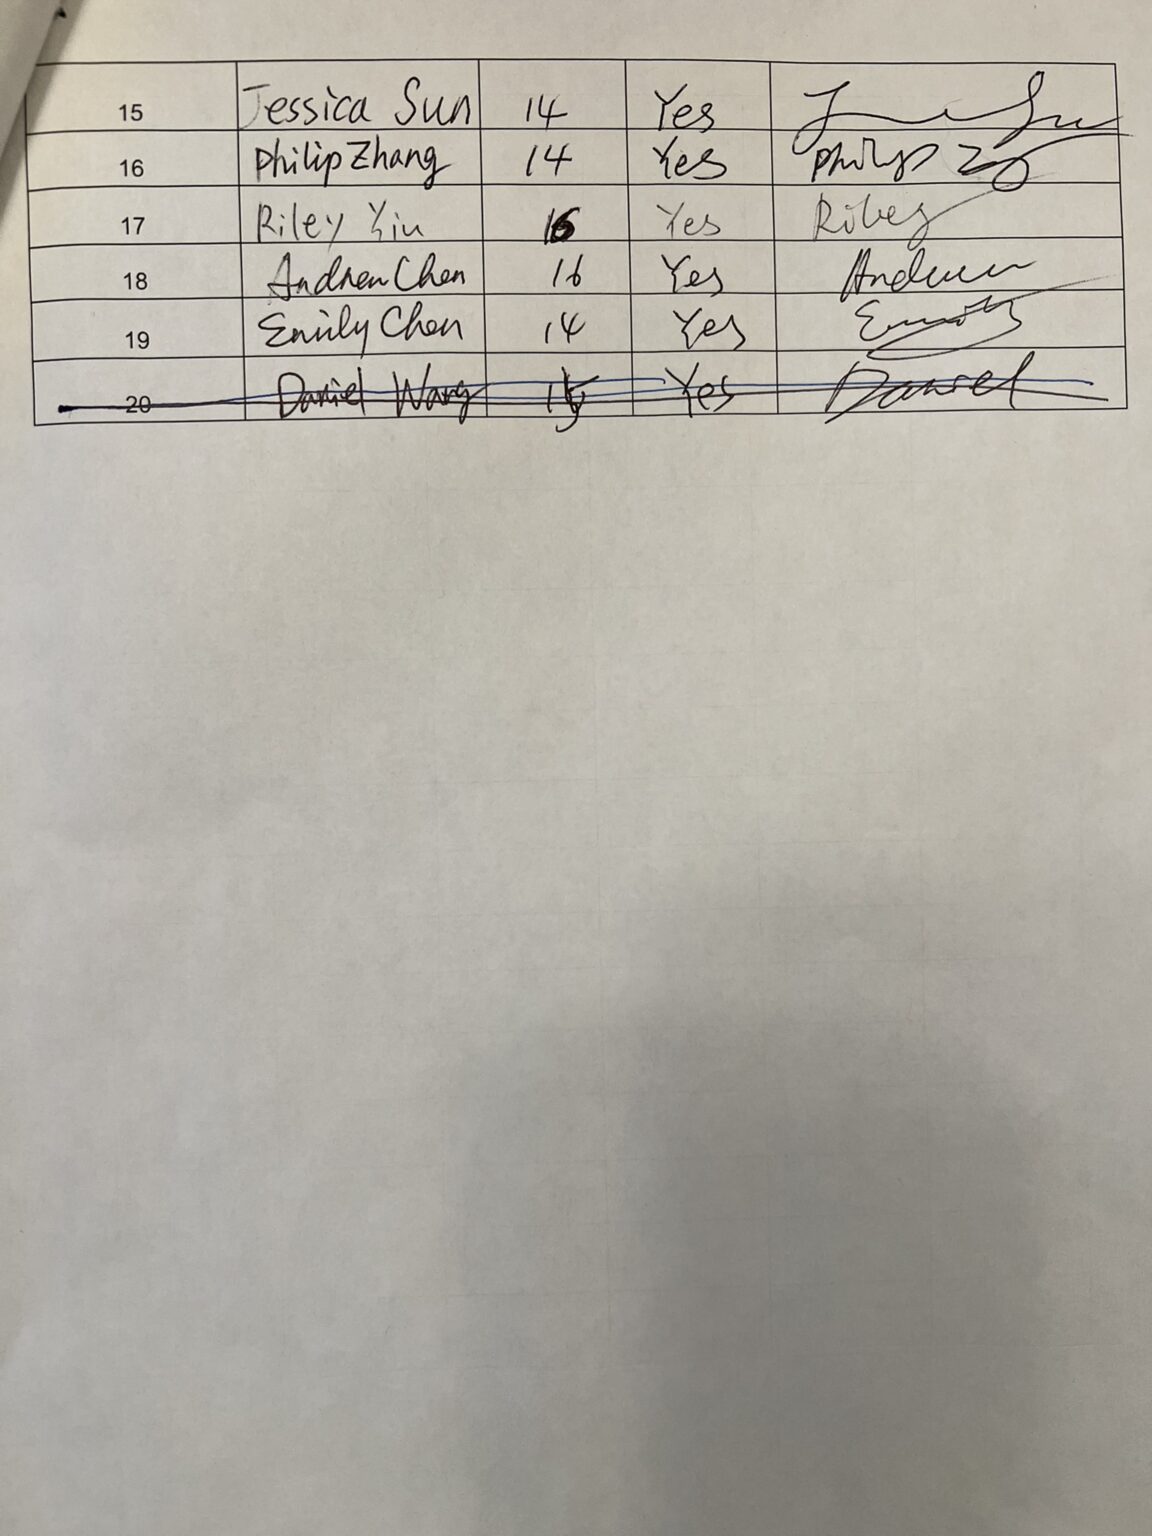 15 Jessica Sun 14 Yes
16 Philip Zhang 14 Yes Philip
17 Riley Yin 16 Yes Riley
18 Andrew Chen 16 Yes Andrew
19 Emily Chen 14 Yes Emily
20 Daniel Wang 15 Yes Daniel